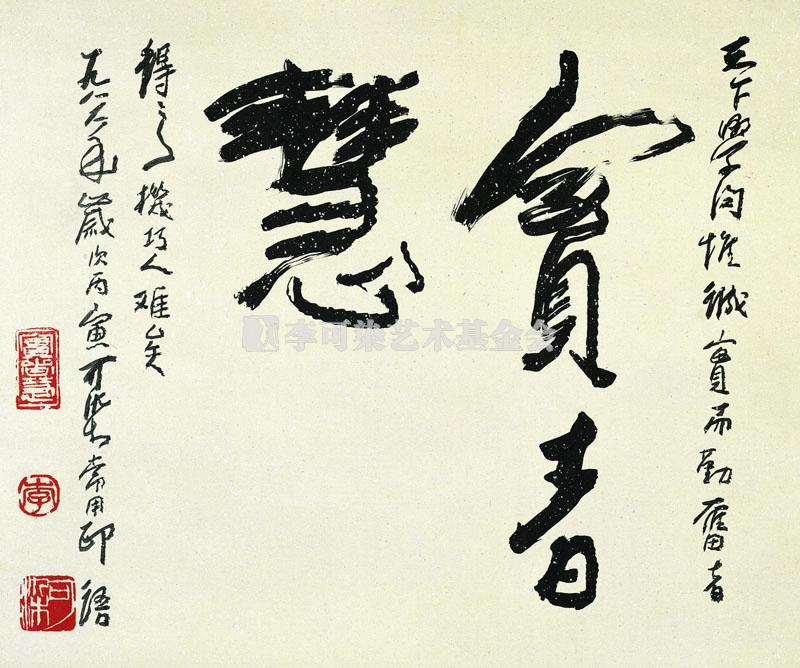 天下學問惟誠實而勤奮者
實者
慧
得之機巧人难矣
一九八六年歲次丙寅可染常用印語
實者慧
李
可染
李可染艺术基金会